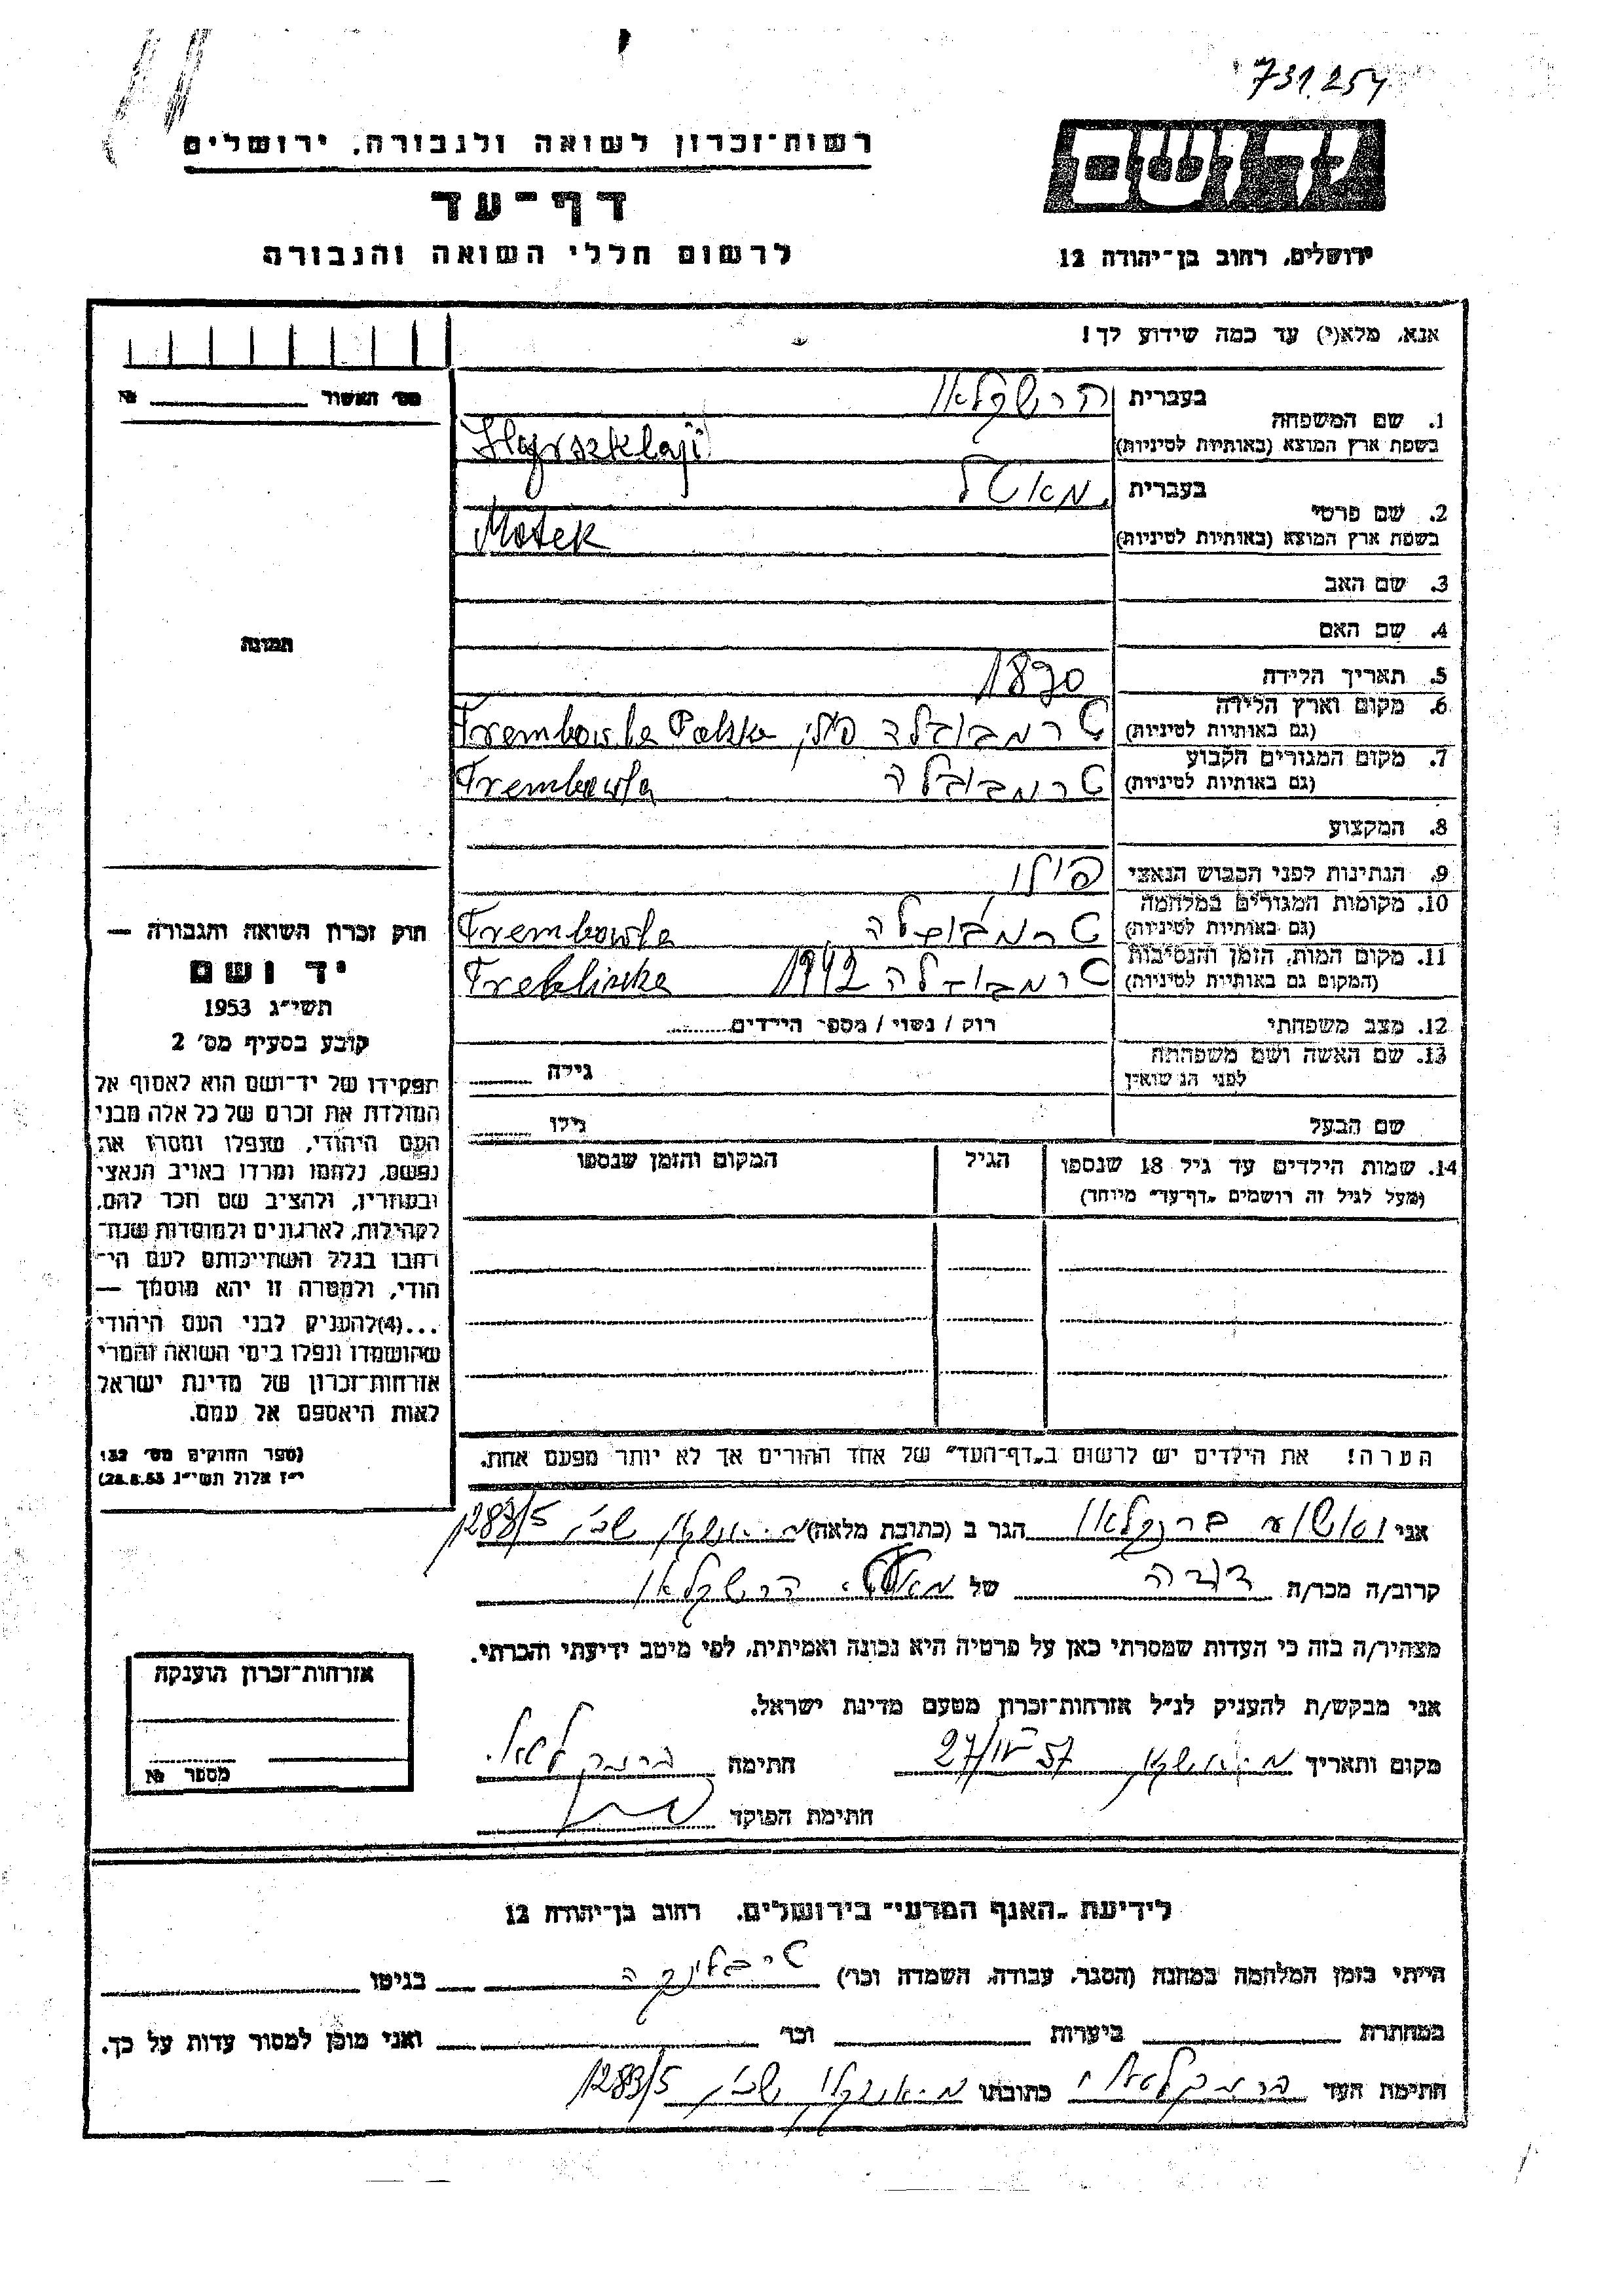 731,254
רשות־זכרון לשואה ולגבורה, ירושלים
דף־עד
לרשום חללי השואה והגבורה
יד ושם
ירושלים, רחוב בן־יהודה 12
אנא, מלא(י) עד כמה שידוע לך!
מס׳ האשור №
תמונה
1. שם המשפחה
בעברית
בשפת ארץ המוצא (באותיות לטיניות)
2. שם פרטי
בעברית
בשפת ארץ המוצא (באותיות לטיניות) Motek
3. שם האב
4. שם האם
5. תאריך הלידה 1870
6. מקום וארץ הלידה
(גם באותיות לטיניות) טרמבובלה פולין Trembowla Polska
7. מקום המגורים הקבוע
(גם באותיות לטיניות) טרמבובלה Trembowla
8. המקצוע
9. הנתינות לפני הכבוש הנאצי פולין
10. מקומות המגורים במלחמה
(גם באותיות לטיניות) טרמבובלה Trembowla
11. מקום המות, הזמן והנסיבות
(המקום גם באותיות לטיניות) 1942 Treblinka
12. מצב משפחתי רוק / נשוי / מספר הילדים
13. שם האשה ושם משפחתה
לפני הנישואין גילה
שם הבעל גילו
14. שמות הילדים עד גיל 18 שנספו
(מעל לגיל זה רושמים „דף־עד״ מיוחד)
הגיל
המקום והזמן שנספו
הערה! את הילדים יש לרשום ב„דף־העד״ של אחד ההורים אך לא יותר מפעם אחת.
חוק זכרון השואה והגבורה —
יד ושם
תשי״ג 1953
קובע בסעיף מס׳ 2
תפקידו של יד־ושם הוא לאסוף אל
המולדת את זכרם של כל אלה מבני
העם היהודי, שנפלו ומסרו את
נפשם, נלחמו ומרדו באויב הנאצי
ובעוזריו, ולהציב שם וזכר להם,
לקהילות, לארגונים ולמוסדות שנח־
רבו בגלל השתייכותם לעם הי־
הודי, ולמטרה זו יהא מוסמך —
...(4)להעניק לבני העם היהודי
שהושמדו ונפלו בימי השואה והמרי
אזרחות־זכרון של מדינת ישראל
לאות היאספם אל עמם.
(ספר החוקים מס׳ 132
י״ז אלול תשי״ג 28.8.53)
אני הגר ב (כתובת מלאה) 1283/5
קרוב/ה מכר/ה דודה של
מצהיר/ה בזה כי העדות שמסרתי כאן על פרטיה היא נכונה ואמיתית, לפי מיטב ידיעתי והכרתי.
אני מבקש/ת להעניק לנ״ל אזרחות־זכרון מטעם מדינת ישראל.
מקום ותאריך 57 חתימה
חתימת הפוקד
אזרחות־זכרון הוענקה
מספר №
לידיעת „האגף המדעי״ בירושלים, רחוב בן־יהודה 12
הייתי בזמן המלחמה במחנה (הסגר, עבודה, השמדה וכו׳) טרבלינקה בגיטו
במחתרת ביערות וכו׳ ואני מוכן למסור עדות על כך.
חתימת העד כתובתו 1283/5